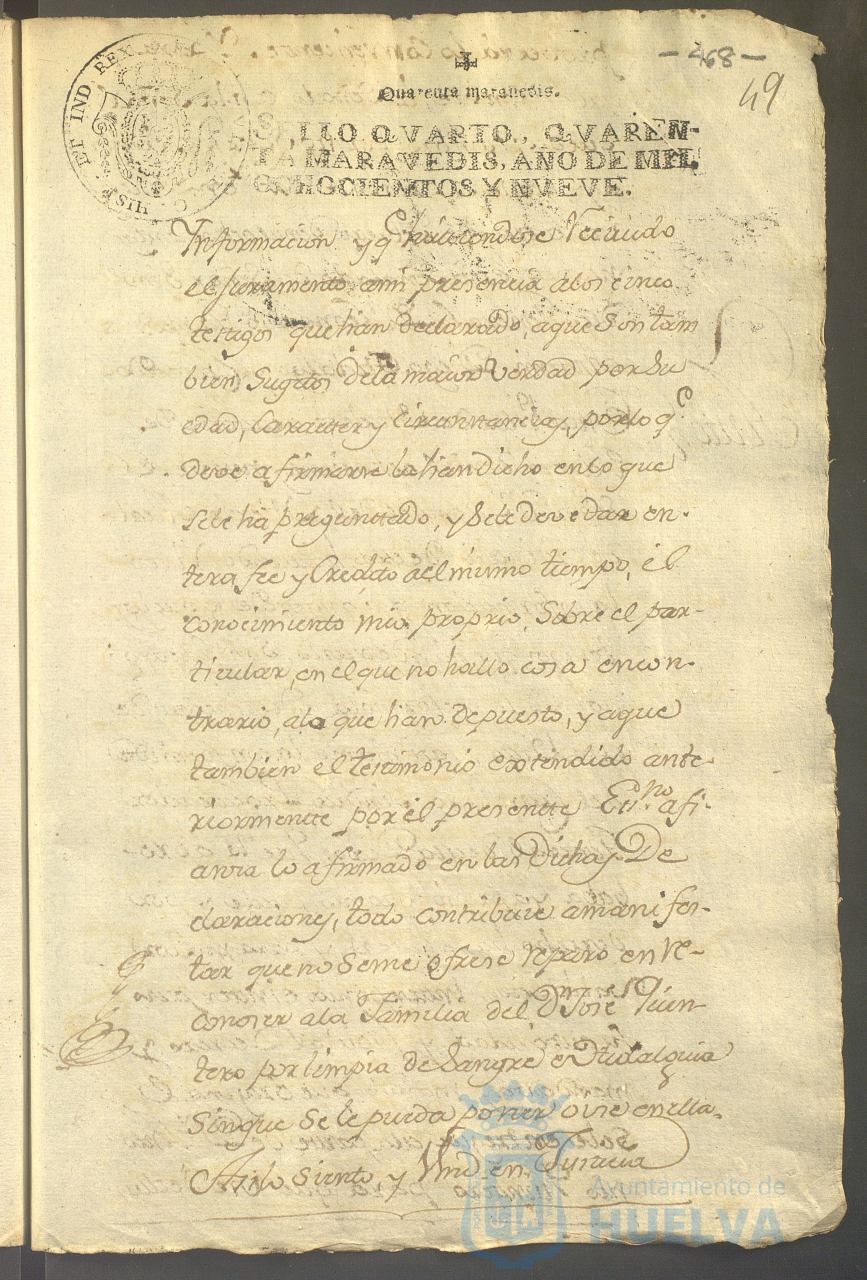 - 468 -
49
Quarenta maravedis.
SELLO QVARTO, QVAREN-
TA MARAVEDIS, AÑO DE MIL
OCHOCIENTOS Y NVEVE.
HIS ET IND REX
Ynformacion y q.e haviendose recivido
el Juramento ami presencia alos cinco
testigos que han declarado, aque son tam
bien sugetos dela maior verdad por su
edad, caracter y circunstancias, por lo q.e
deve afirmarse la han dicho en lo que
sele ha preguntado, y sele deve dar en-
tera fee y Credito ael mismo tiempo, el
conocimiento mio proprio, sobre el par-
ticular, en el que no hallo cosa en con-
trario, alo que han depuesto, y aque
tambien el testimonio extendido ante-
riormente por el presentte Es.no afi-
anza lo afirmado en las Dichas De
claraciones, todo contribuie a manifes-
tar que no seme ofrese reparo en re-
conoser ala familia del D.n Jose Quin-
tero por limpia de Sangre e Hidalguia
sin que se le pueda poner ovise en ella.
Asi lo siento y Vmd en Justicia
Ayuntamiento de
HUELVA